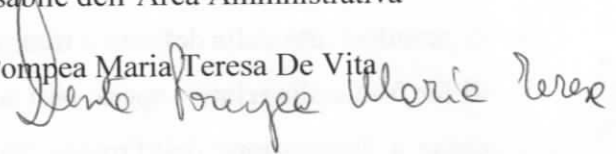 sabile dell'Area Amministrativa
ompea Maria Teresa De Vita
Pompea Maria Teresa